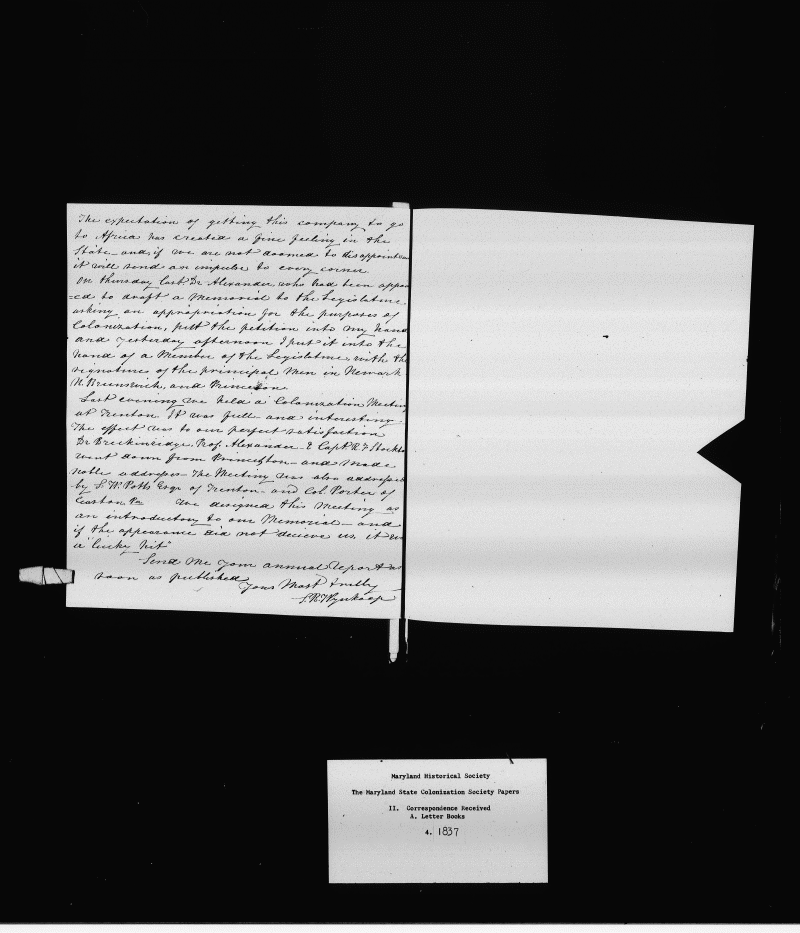 The expectation of getting this company to go
to Africa has created a fine feeling in the
State and if we are not doomed to disappointm
it will send an impulse to every corner.
On thursday last Dr Alexander, who had been appoi
=ed to draft a Memorial to the Legislature
asking an appropriation for the purposes of
Colonization, putt the petition into my hand
and yesterday afternoon I put it into the
hand of a Member of the Legislature with the
signatures of the principal Men in Newark
N. Brunswick, and Princeton.
Last evening we held a Colonization Meeting
at Trenton. It was full and interesting.
The effect was to our perfect satisfaction
Dr Breckinridge, Prof. Alexander & Capt. R F Stockto
went down from Princeton and made
noble addresses. The Meeting was also addressed
by S. W. Potts Esqr of Trenton and Col. Porter of
Easton Pa We designed this Meeting as
an introductory to our Memorial and
if the appearance did not decieve us, it w
a "lucky hit"
Send me your annual Report as
soon as published
Yours Most truly
Wynkoop
Maryland Historical Society
The Maryland State Colonization Society Papers
II. Correspondence Received
A. Letter Books
4. 1837